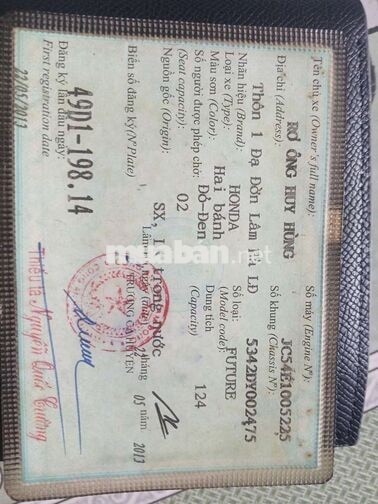 Tên chủ xe (Owner's full name):
Số máy (Engine Nº):
RƠ ÔNG HUY HÙNG
JC54E1005225
Địa chỉ (Address):
Số khung (Chassis Nº):
Thôn 1 Đạ Đờn Lâm Hà LĐ
5342DY002475
Nhãn hiệu (Brand): HONDA
Số loại: FUTURE
(Model code)
Loại xe (Type): Hai bánh
Dung tích 124
(Capacity)
Màu sơn (Color): Đỏ-Đen
Số người được phép chở: 02
(Seat capacity)
Nguồn gốc (Origin): SX, trong nước
Biển số đăng ký (NºPlate)
tháng 05 năm 2013
49D1-198.14
TRƯỞNG CA HUYỆN
Đăng ký lần đầu ngày:
First registration date
22/05/2013
Thiếu tá Nguyễn Quốc Cường
muaban.net